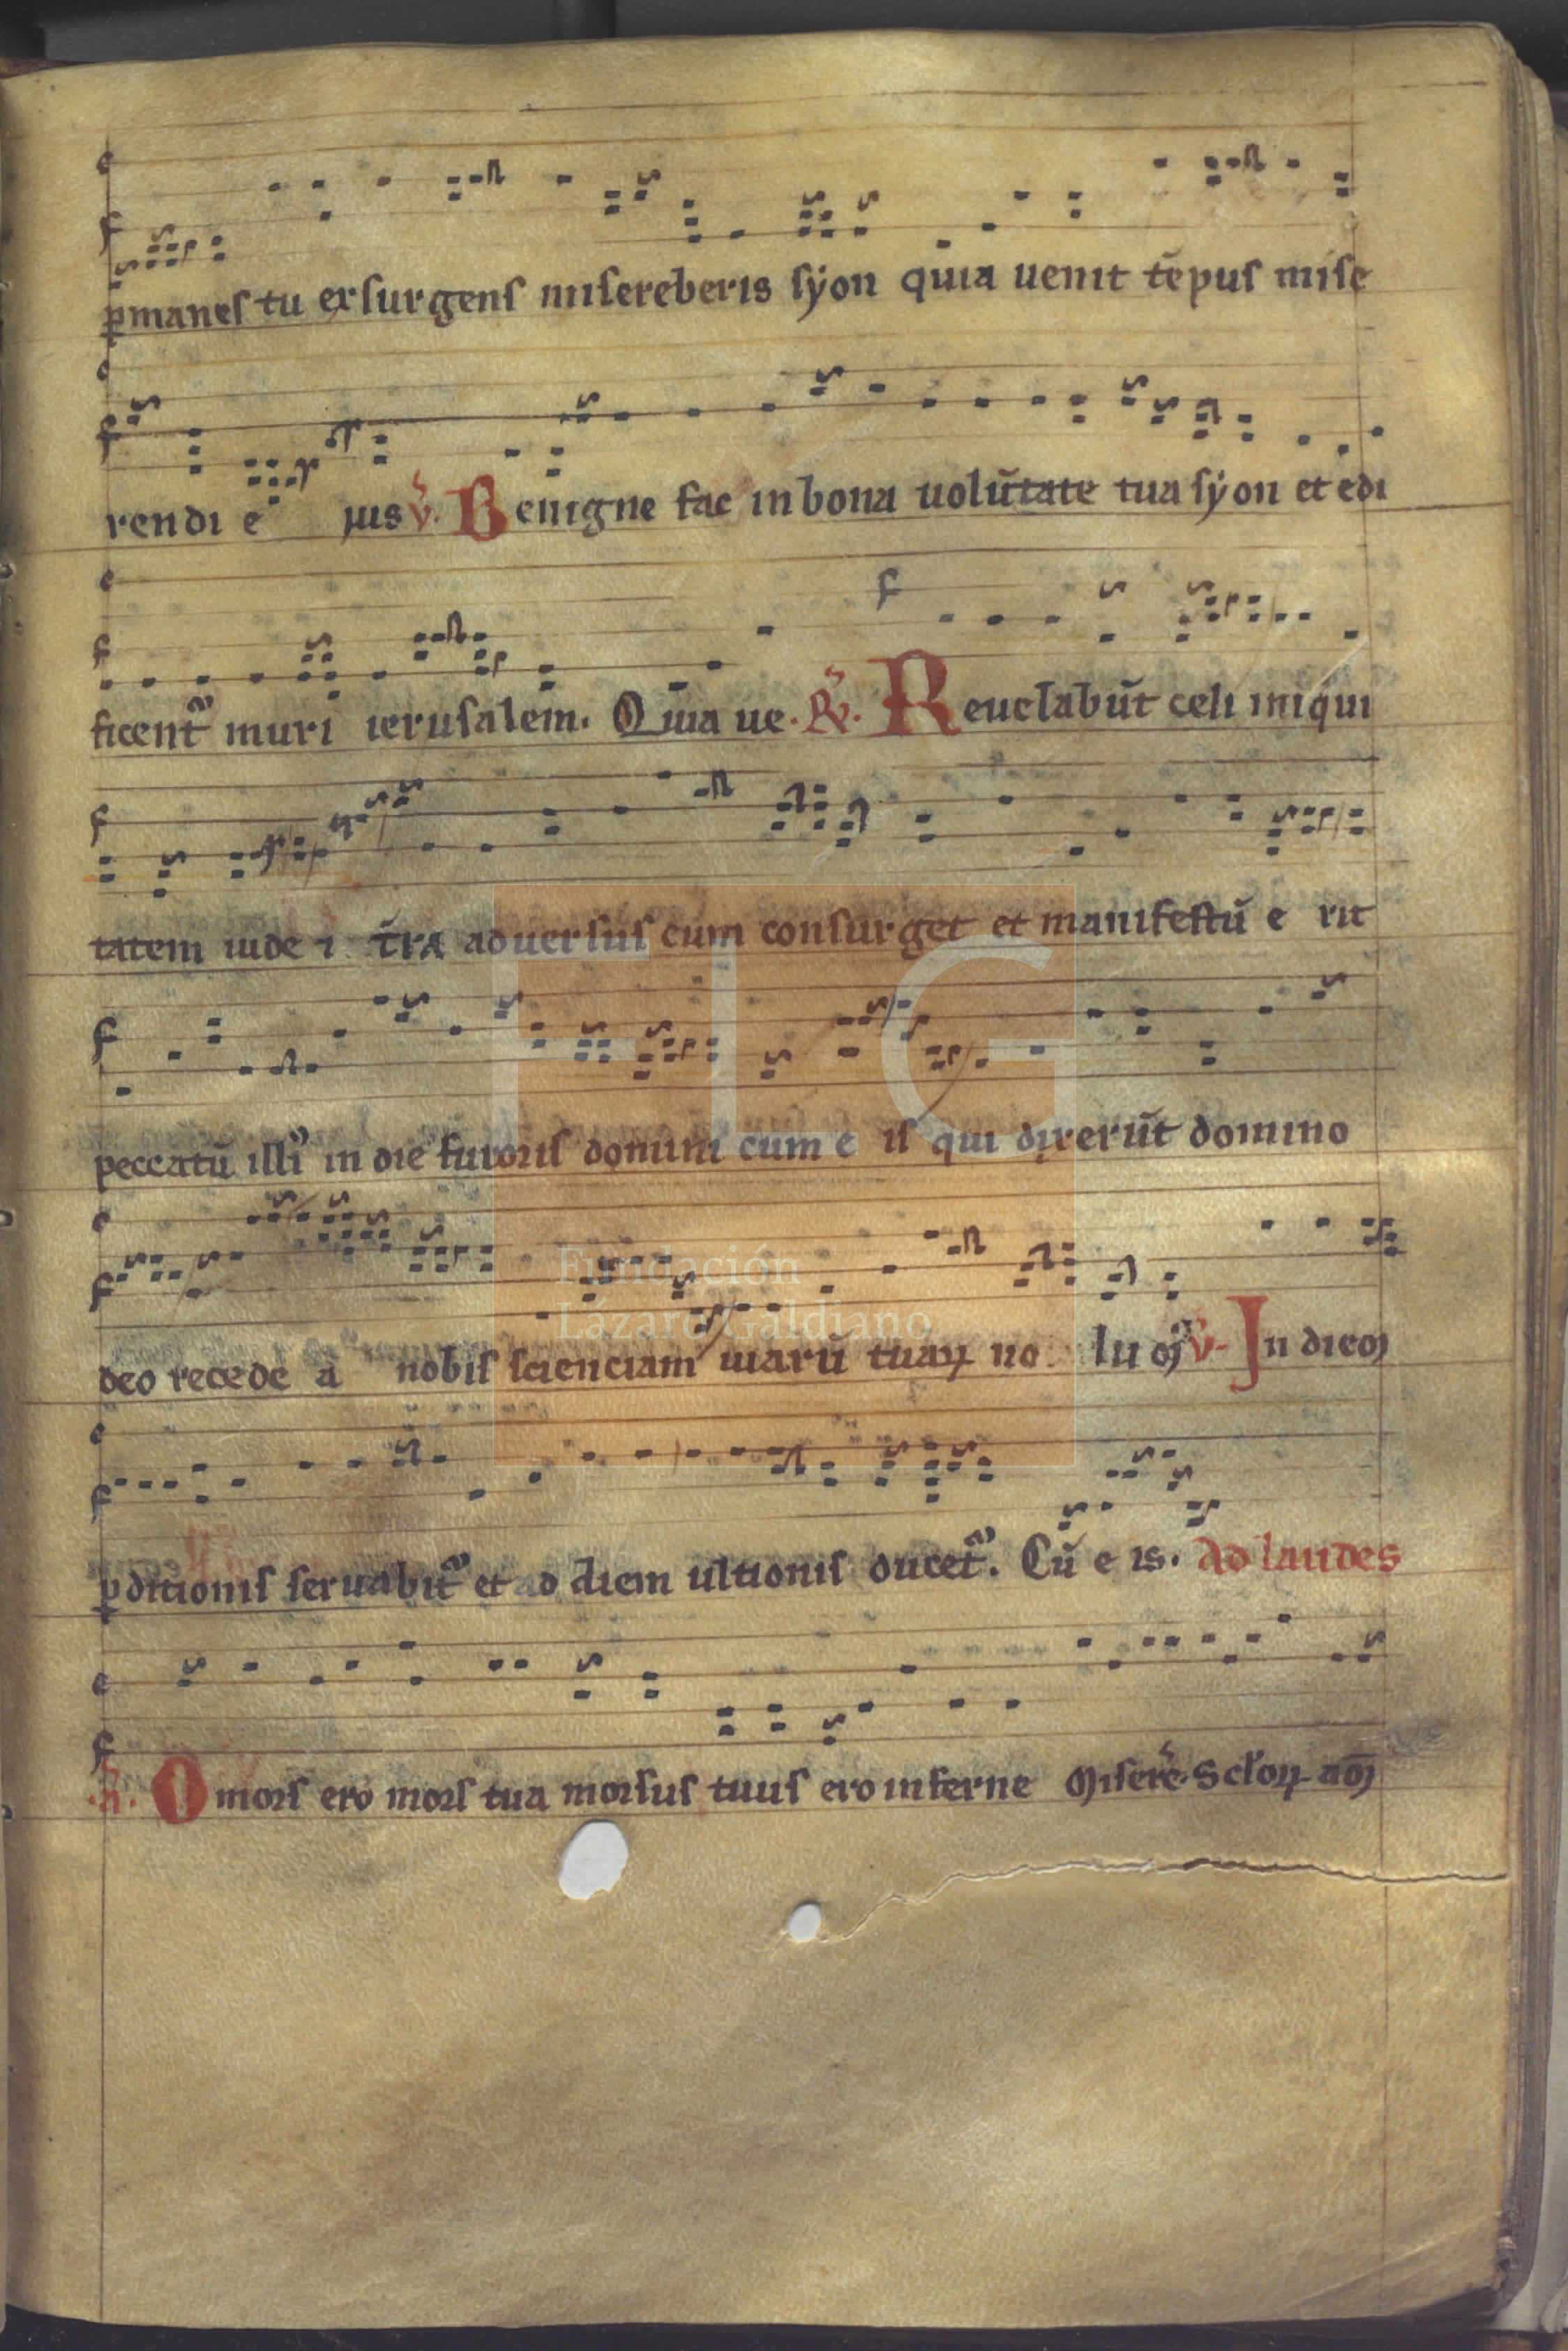 ꝑmanes tu exsurgens misereberis sẏon quia uenit tēpus mise
rendi e ius v̓. Benigne fac in bona uolūtate tua sẏon et edi
ficent᷑ muri ierusalem. Quia ue. R̓. Reuelabūt celi iniqui
tatem iude ⁊ t̄ra aduersus eum consurget et manifestū e rit
peccatū illi᷒ in die furoris domini cum e is qui dixerūt domino
deo recede a nobis scienciam uiarū tuaꝝ no lum᷒ v̓. In diem
ꝑditionis seruabit᷑ et ad diem ultionis ducet᷑. Cū e is. Ad laudes
.a̓. O mors ero mors tua morsus tuus ero inferne Miserē. Scl̓oꝝ am̄
FLG
Fundación
Lázaro Galdiano